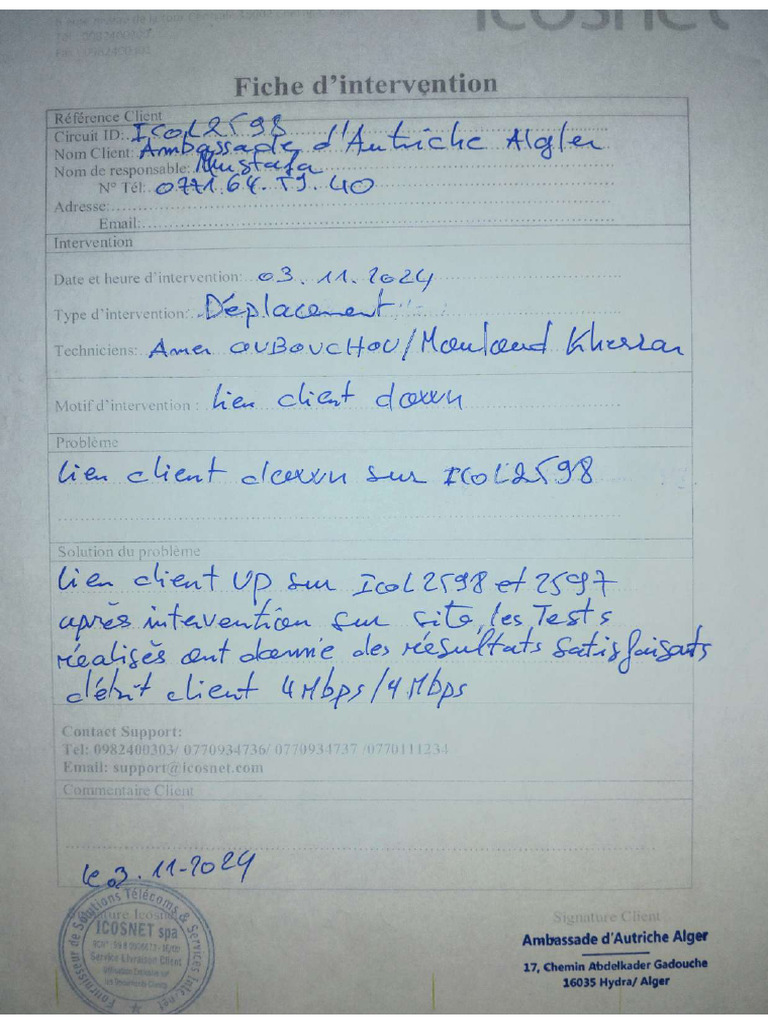 icosnet
Tél : 0982400307
Fax : 0982400302
Fiche d'intervention
Référence Client
Circuit ID: ICOL2598
Nom Client: Ambassade d'Autriche Algler
Nom de responsable: Mustafa
N° Tél: 0771.64.79.40
Adresse:
Email:
Intervention
Date et heure d'intervention: 03.11.2024
Type d'intervention: Déplacement
Techniciens: Amer OUBOUCHOU/Mouloud
Motif d'intervention : lien client down
Problème
lien client down sur ICOL2598
Solution du problème
lien client UP sur Icol2598 et 2597
après intervention sur site, les Tests
réalisés ont donnie des résultats satisfaisants
débit client 4Mbps/4Mbps
Contact Support:
Tel: 0982400303/ 0770934736/ 0770934737 /0770111234
Email: support@icosnet.com
Commentaire Client
le 03.11-2024
Signature Icosnet
Fournisseur de Solutions Télécoms & Services Internet
ICOSNET spa
Service Livraison Client
Utilisation Exclusive sur
les Documents Clients
Signature Client
Ambassade d'Autriche Alger
17, Chemin Abdelkader Gadouche
16035 Hydra/ Alger